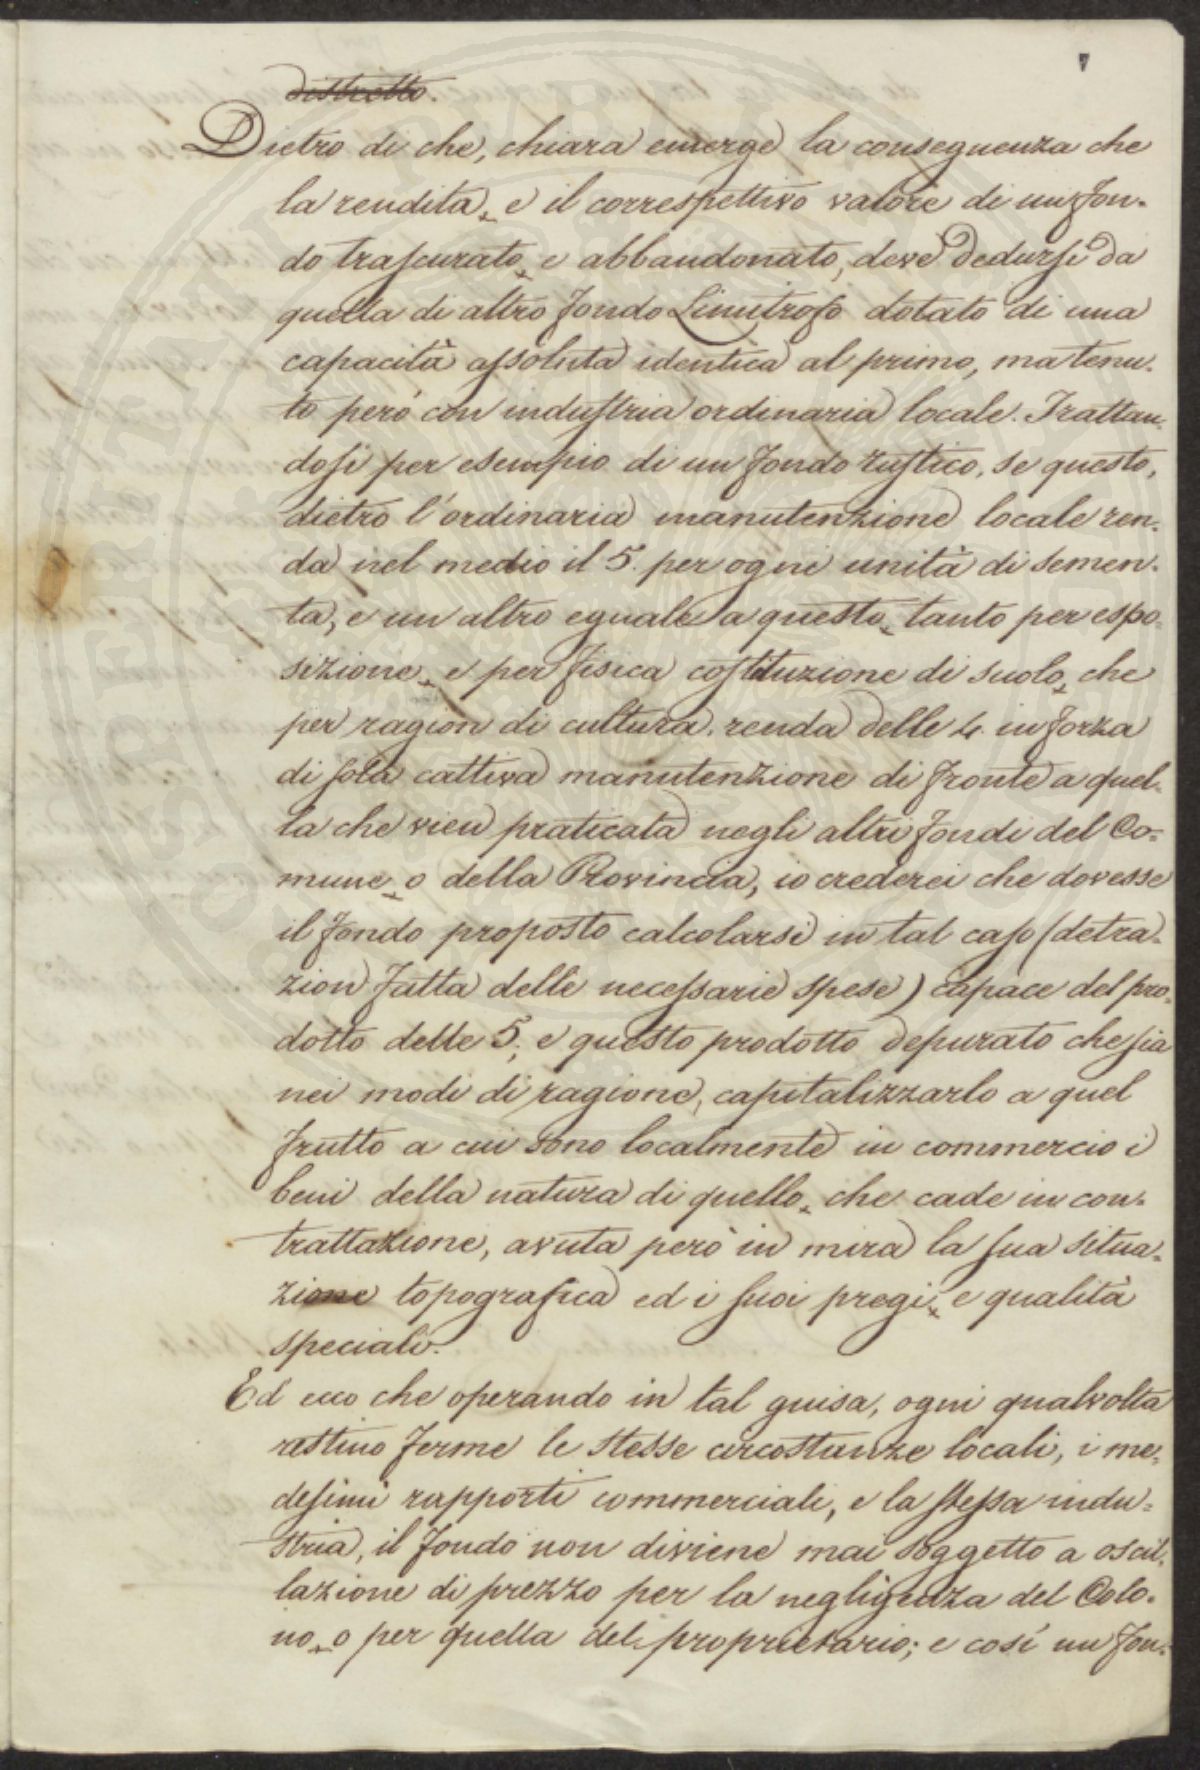 distretto.
Dietro di che, chiara emerge la conseguenza che
la rendita, e il correspettivo valore di un fon-
do trascurato, e abbandonato, deve dedursi da
quella di altro fondo Limitrofo dotato di una
capacità assoluta identica al primo, ma tenu-
to però con industria ordinaria locale. Trattan-
dosi per esempio di un fondo rustico, se questo,
dietro l'ordinaria manutenzione locale ren-
da nel medio il 5. per ogni unità di semen-
ta, e un altro eguale a questo, tanto per espo-
sizione, e per fisica costituzione di suolo, che
per ragion di cultura, renda delle 4. in forza
di sola cattiva manutenzione di fronte a quel-
la che vien praticata negli altri fondi del Co-
mune, o della Provincia, io crederei che dovesse
il fondo proposto calcolarsi in tal caso (detra-
zion fatta delle necessarie spese) capace del pro-
dotto delle 5, e questo prodotto depurato che sia
nei modi di ragione, capitalizzarlo a quel
frutto a cui sono localmente in commercio i
beni della natura di quello, che cade in con-
trattazione, avuta però in mira la sua situa-
zione topografica ed i suoi pregi, e qualità
speciali.
Ed ecco che operando in tal guisa, ogni qualvolta
restino ferme le stesse circostanze locali, i me-
desimi rapporti commerciali, e la stessa indu-
stria, il fondo non diviene mai soggetto a oscil-
lazione di prezzo per la negligenza del Colo-
no, o per quella del proprietario; e così un fon-
PROSPERITATI PUBLICAE